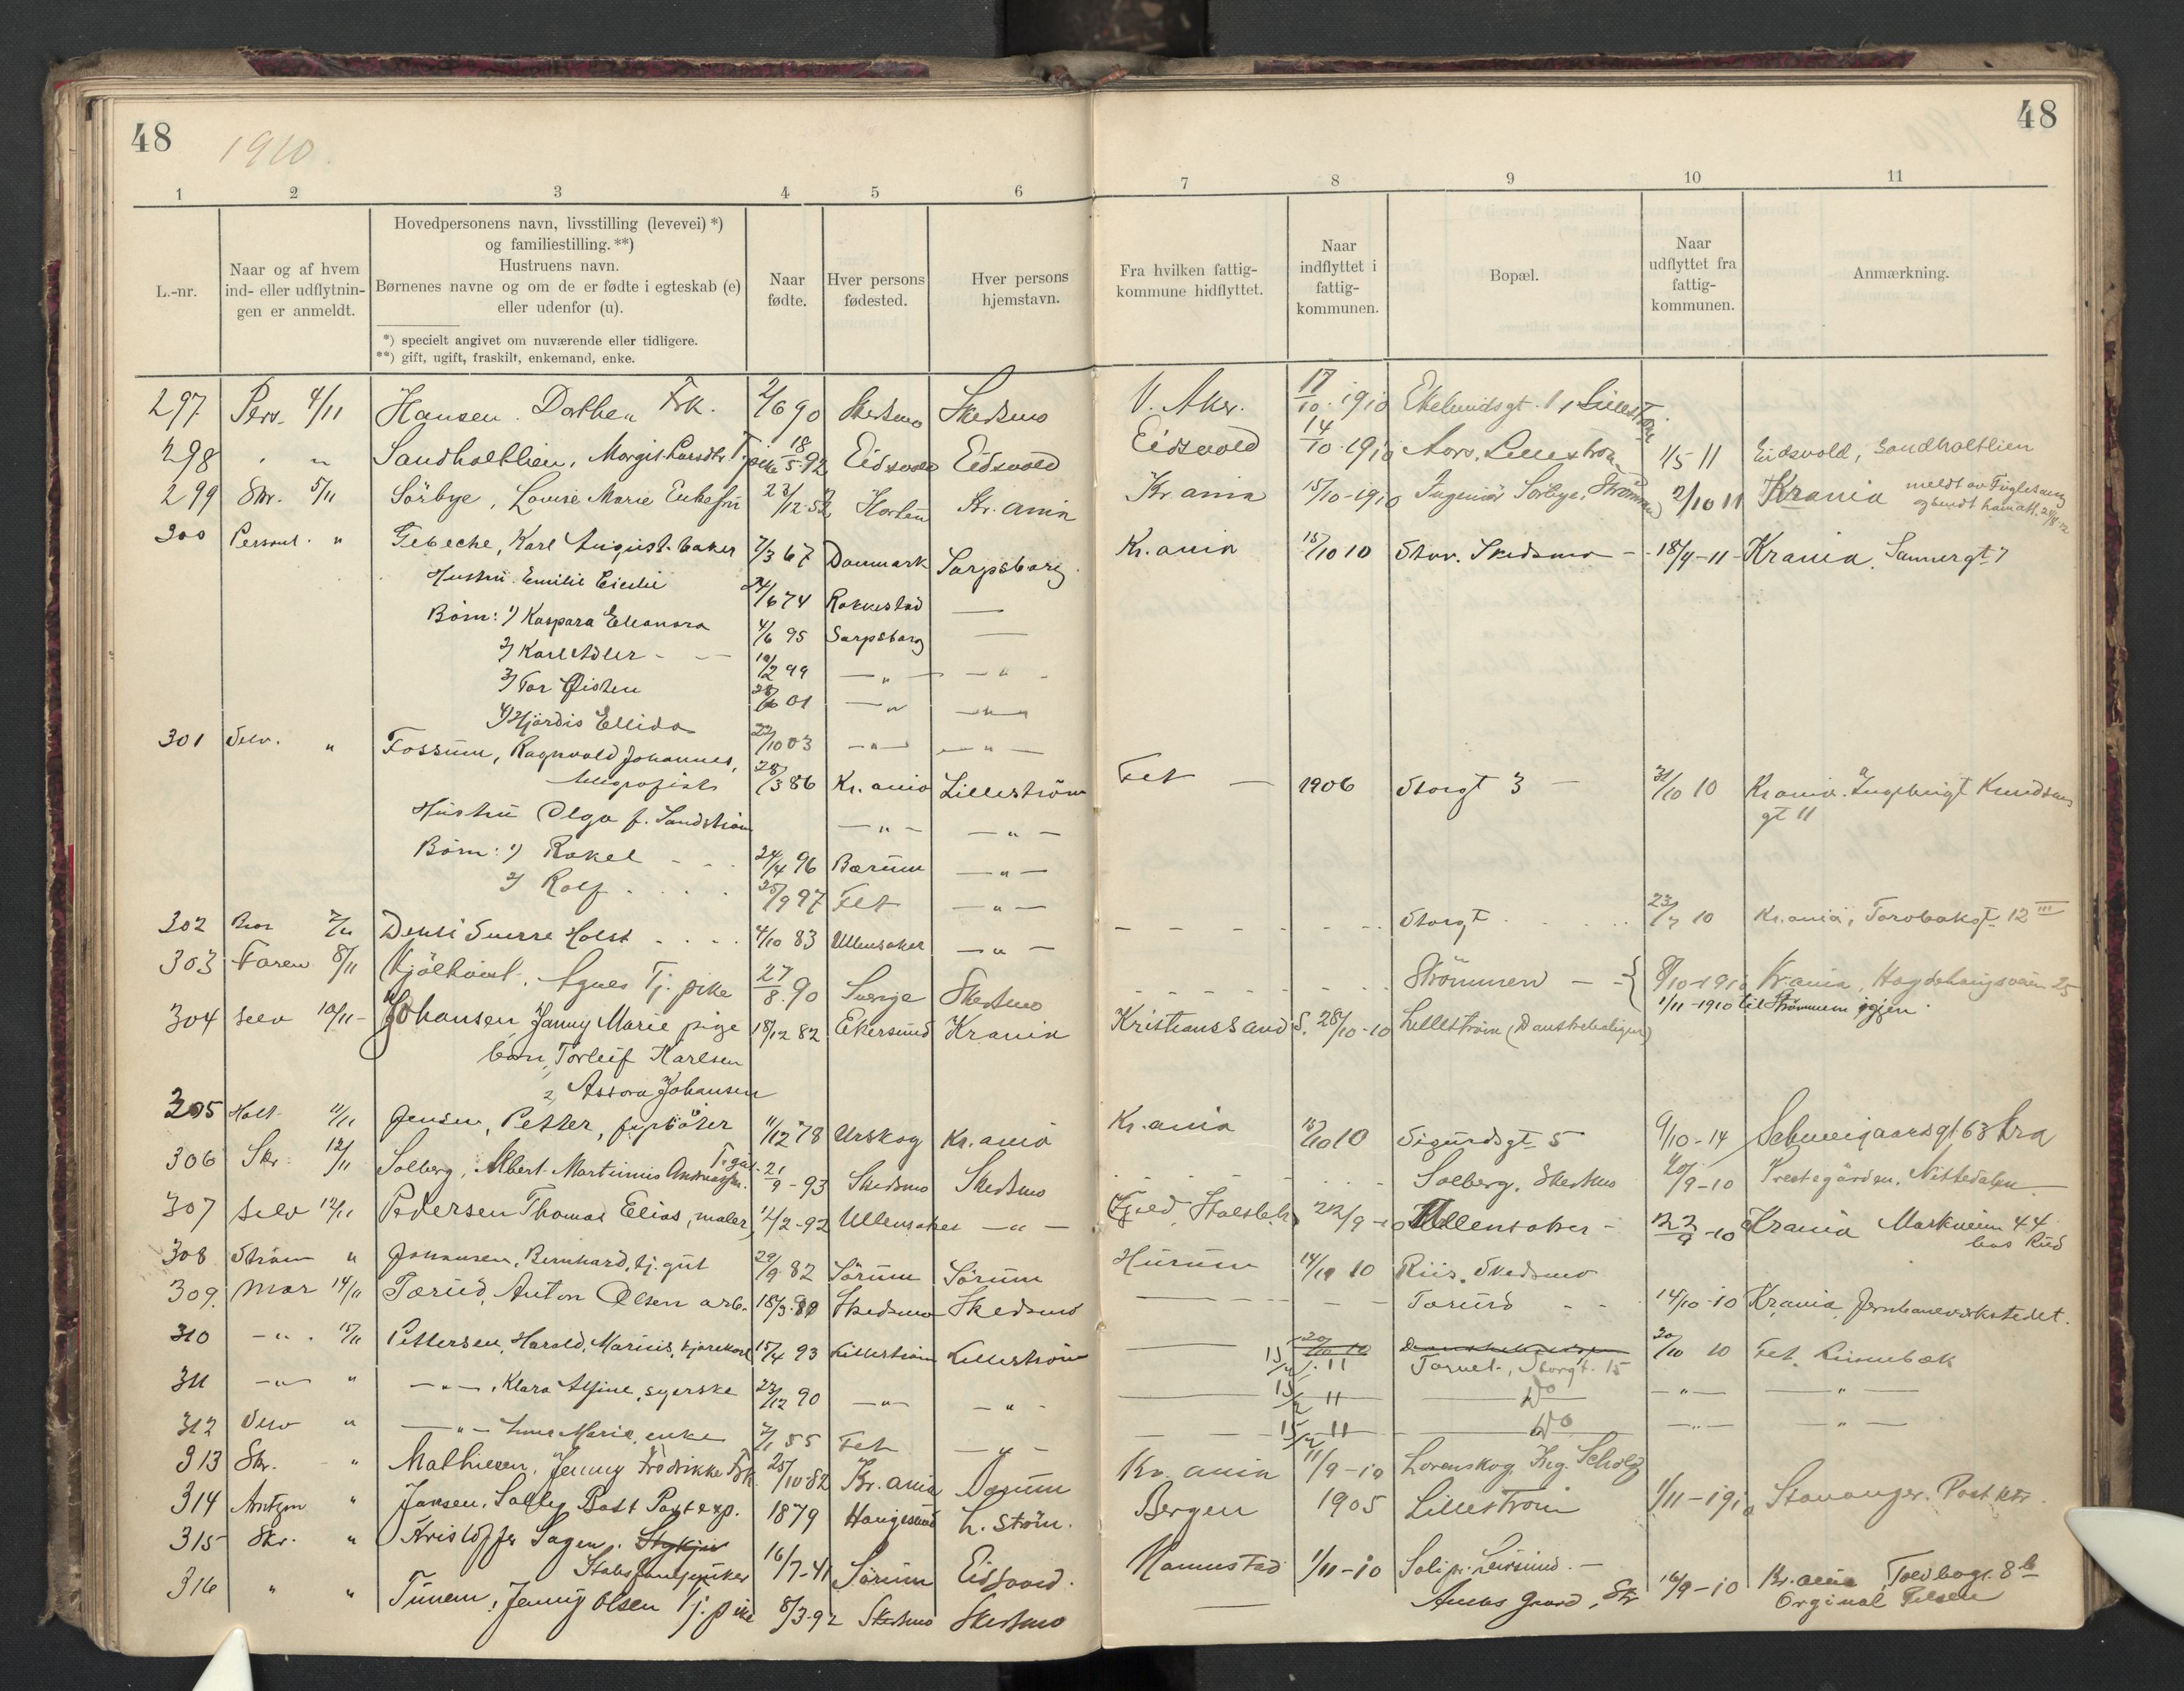 48 1910. 48
1 2 3 4 5 6 7 8 9 10 11
L.-nr.
Naar og af hvem
ind- eller udflytnin-
gen er anmeldt.
Hovedpersonens navn, livsstilling (levevei) *)
og familiestilling. **)
Hustruens navn.
Børnenes navne og om de er fødte i egteskab (e)
eller udenfor (u).
*) specielt angivet om nuværende eller tidligere.
**) gift, ugift, fraskilt, enkemand, enke.
Naar
fødte.
Hver persons
fødested.
Hver persons
hjemstavn.
Fra hvilken fattig-
kommune hidflyttet.
Naar
indflyttet i
fattig-
kommunen.
Bopæl.
Naar
udflyttet fra
fattig-
kommunen.
Anmærkning.
297 Pers. 4/11 Hansen. Dorthea Frk. 2/6 90 Skedsmo Skedsmo V. Aker. 17/10 1910
298 " " Sandholtlien, Margit 18/5 92 Eidsvold Eidsvold Eidsvold 14/10 1910 Lillestrøm 1/5 11 Eidsvold, Sandholtlien
299 Skr. 5/11 Sörbye, Louise Marie Enkefru 23/12 52 Horten Kr.ania Kr ania 15/10-1910 Ingeniör Sörbye, Strömmen 2/10 11 Krania meldt av Fuglesang
300 Personl. " Gebeche, Karl August. baker 7/3 67 Danmark Sarpsborg Kr. ania 15/10 10 Skedsmo - 18/4-11 - Krania. Sannergt 7
Hustru Emilie 24/6 74 Rakkestad —
Børn: 1) Kaspara Eleonora 4/6 95 Sarpsborg —
2) Karl Adler - — 10/2 99 — " — — " -
3) Tor Øisten 01 — " — " —
4) Hjørdis Ellida 22/10 03 — " — — " —
301 Selv. " Fossum, Ragnvald Johannes,
telegrafist 28/3 86 Kr. ania Lillestrøm Fet — 1906 Storgt 3 — 31/10 10 Kr ania. Ingebrigt Knudsens
gt 11
Hustru Olga f. Sandstrøm — " — — " —
Børn: 1) Rakel - - . 24/4 96 Bærum — " —
2) Rolf . . . . 25/9 97 Fet — " —
302 Densi Sverre Holst . . . . 4/10 83 Ullensaker — " — Storgt . . . 10 Kr.ania, 12 III
303 Faren 8/11 Agnes Tj. pike 27/8 90 Sverige Skedsmo Strömmen - - 8/10-1910 Kr.ania, 25
1/11 -1910 til Strömmen igjen
304 Selv 10/11 - Johansen Janny Marie pige 18/12 82 Ekersund Krania Kristianssand S. 28/10-10 Lillestrøm
barn, Torleif Karlsen
2, Johansen
305 Holt 11/11 Jensen, Petter, fyrbøter 11/12 78 Urskog Kr. ania Kr. ania 15/10 10 Sigurdsgt 5 9/10-14 Schweigaardsgt 63 Kra
306 Skr. 12/11 Solberg, Albert Martinius T. gut. 21/9 - 93 Skedsmo Skedsmo Solberg, Skedsmo 20/9-10 Prestegården, Nittedalen
307 Selv 12/11 Pedersen Thomas Elias, maler 12/2-92 Ullensaker — " — 22/9 - 10 Ullensaker - 22/9 -10 Krania Markveien 44
hos Rud
308 Strøm " Johansen, Bernhard, tj. gut 29/9 82 Sörum Sörum Hurum 14/10 10 Riis, Skedsmo
309. Mor 14/11 Tærud, Anton Olsen arb. 18/3 90 Skedsmo Skedsmo Tærud - - 14/10-10 Krania, Jernbaneverkstedet.
310 — " . 15/11 Pettersen, Harald, Marius, kjørekarl 15/4 93 Lillestrøm Lillestrøm Storgt. 15 20/10 10 Fet.
311 — " — " — " —, Klara Alfine, syerske 23/12 90 — " — — " - 15/2 11 Do — " — — " —
312 Selv " — " — Marie, enke 55 Fet — " — 15/2 11 Do — " — — " —
313 Skr. " Mathiesen, Jenny Fredrikke Frk. 25/10 82 Kr. ania Kr. ania 11/9-10 Lørenskog, Ing. Scholz
314 " Jansen, Solby Bødt Postexp. 1879 Haugesund L. strøm. Bergen 1905 Lillestrøm 1/11-1910 Stavanger. Post ktr.
315 Skr. " Kristoffer Sagen.
16/7-41 Sørum Eidsvold. Nannestad 1/11-10
316 " " Tunem, Jenny Olsen Tj. pike 8/3-92 Skedsmo Skedsmo — Gaard, Skr 16/9-10 Kr. ania Toldbogt. 8 b
Orginal Pilsen